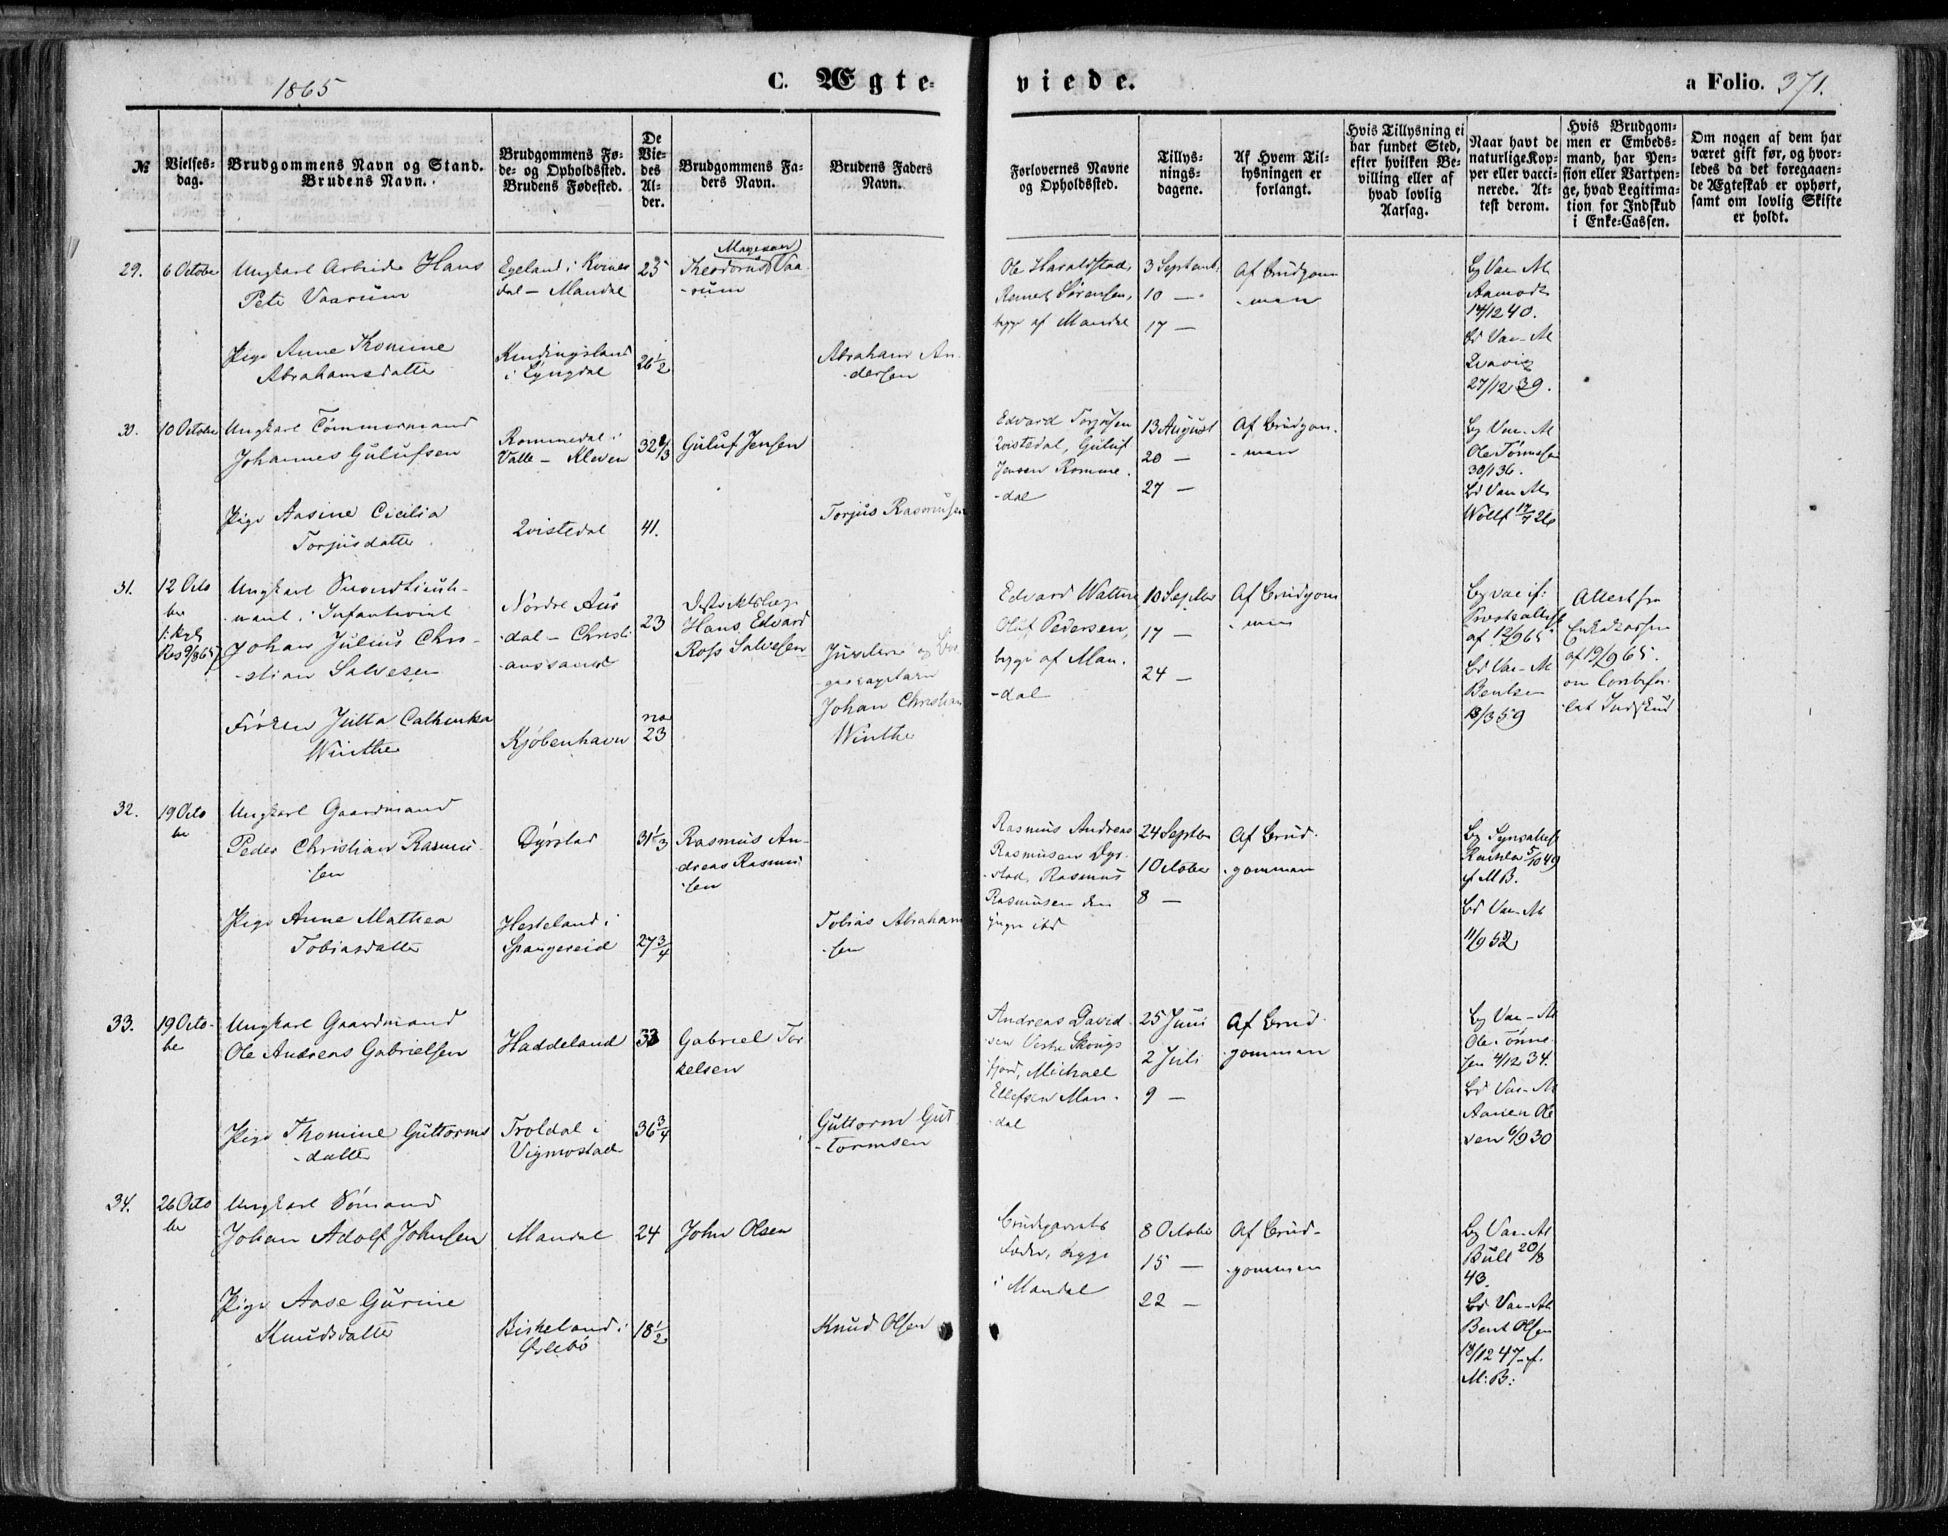 1865
C. Ægte-
viede.
a Folio. 371.
№
Vielses-
dag.
Brudgommens Navn og Stand.
Brudens Navn.
Brudgommens Fø-
de- og Opholdssted.
Brudens Fødested.
De
Vie-
des
Al-
der.
Brudgommens Fa-
ders Navn.
Brudens Faders
Navn.
Forlovernes Navne
og Opholdssted.
Tillys-
nings-
dagene.
Af Hvem Til-
lysningen er
forlangt.
Hvis Tillysning ei
har fundet Sted,
efter hvilken Be-
villing eller af
hvad lovlig
Aarsag.
Naar havt de
naturlige Kop-
per eller vacci-
nerede. At-
test derom.
Hvis Brudgom-
men er Embeds-
mand, har Pen-
sion eller Vartpen-
ge, hvad Legitima-
tion for Indskud
i Enke-Cassen.
Om nogen af dem har
været gift før, og hvor-
ledes da det foregaaen-
de Ægteskab er ophørt,
samt om lovlig Skifte
er holdt.
29.
6 Octobe
Ungkarl Arbeide Hans
Pete Vaarum
Egeland i Kvines
dal - Mandal
25
Theodorus Vaa-
-rum
Ole Haraldstad,
Sørensen,
begge af Mandal
3 Septemb.
10 —
17 —
Af Brudgom
-man
Bg Vac-At
Aamodt
14/12 40.
Bd Vac-At
27/12 39.
Pige Anne Thomine
Abrahamsdatte
Kundingsland
i Lyngdal
26 1/2
Abraham An-
-dersen
30.
10 Octobe
Ungkarl Tømmermand
Johannes Gulufsen
Rommedal i
Valle - Kleven
32 2/3
Guluf Jensen
Edvard Torjusen
Qvistedal, Guluf
Jensen Romme-
-dal
13 August
20 —
27 —
Af Brudgom-
-man
Bg Vac-At
Ole Tønnesen
30/1 36.
Bd Vac-At
Wolff 17/7 26
Pige Aasine Cicilia
Torjusdatte
Qvistedal
41.
Torjus Rasmusen
31.
12 Octo
be
Ungkarl Secondlieut-
-nant i Infanteriet
Johan Julius Chri-
-stian Salvesen
Nordre Aus
-dal - Christi
-anssand
23
Districtslæge
Hans Edvard
Ross Salvesen
Edvard Wattne
Oluf Pedersen,
begge af Man-
-dal
10 Septbr
17 —
24 —
Af Brudgom
-man
Bg vac if:
Provstsattest
af 12/9 65
Bd Vac-At
Bentsen
13/3 59
Attest fra
Enkekassen
af 19/9 65.
om
-lat Indskud
Frøken Jutta Cathinka
Winthe
Kjøbenhavn
23
Johan Christian
Winthe
32.
19 Octo
be
Ungkarl Gaardmand
Peder Christian Rasmu-
-sen
Dyrstad
31 1/3
Rasmus An-
-dreas Rasmu-
-sen
Rasmus Andreas
Rasmusen Dyr-
-stad, Rasmus
Rasmusen den
yngre ibd
24 Septbr
1 October
8 —
Af Brud-
-gomman
Bg Synsattest
5/10 49
f M B.
Bd Vac-At
11/9 52
Pige Anne Mathea
Tobiasdatte
Hesteland i
Spangereid
27 3/4
Tobias Abraham
-sen
33.
19 Octo-
be
Ungkarl Gaardmand
Ole Andreas Gabrielsen
Haddeland
33
Gabriel Tor
kelsen
Andreas David-
-sen Vestre Skougs
fjord, Michael
Ellefsen Man-
-dal
25 Juni
2 Juli
9 —
Af Brud-
-gomman
Bg Vac-At
Ole Tønne
sen 4/12 34.
Bd Vac-At
Aanen Ol
sen 6/9 30
Pige Thomine Guttorms
-datte
Troldal i
Vigmostad
36 3/4
Guttorm Gut
-tormsen
34.
26 Octo
be
Ungkarl Sømand
Johan Adolf Johnsen
Mandal
24
John Olsen
Fader, begge
i Mandal
8 October
15 —
22 —
Af Brud-
-gomman
Bg Vac-At
Bull 20/8
43.
Bd Vac-At
Bent Olsen
13/12 47 f.
M:B:
Pige Aase Gurine
Knudsdatte
Birkeland i
Øslebø
18 1/2
Knud Olsen